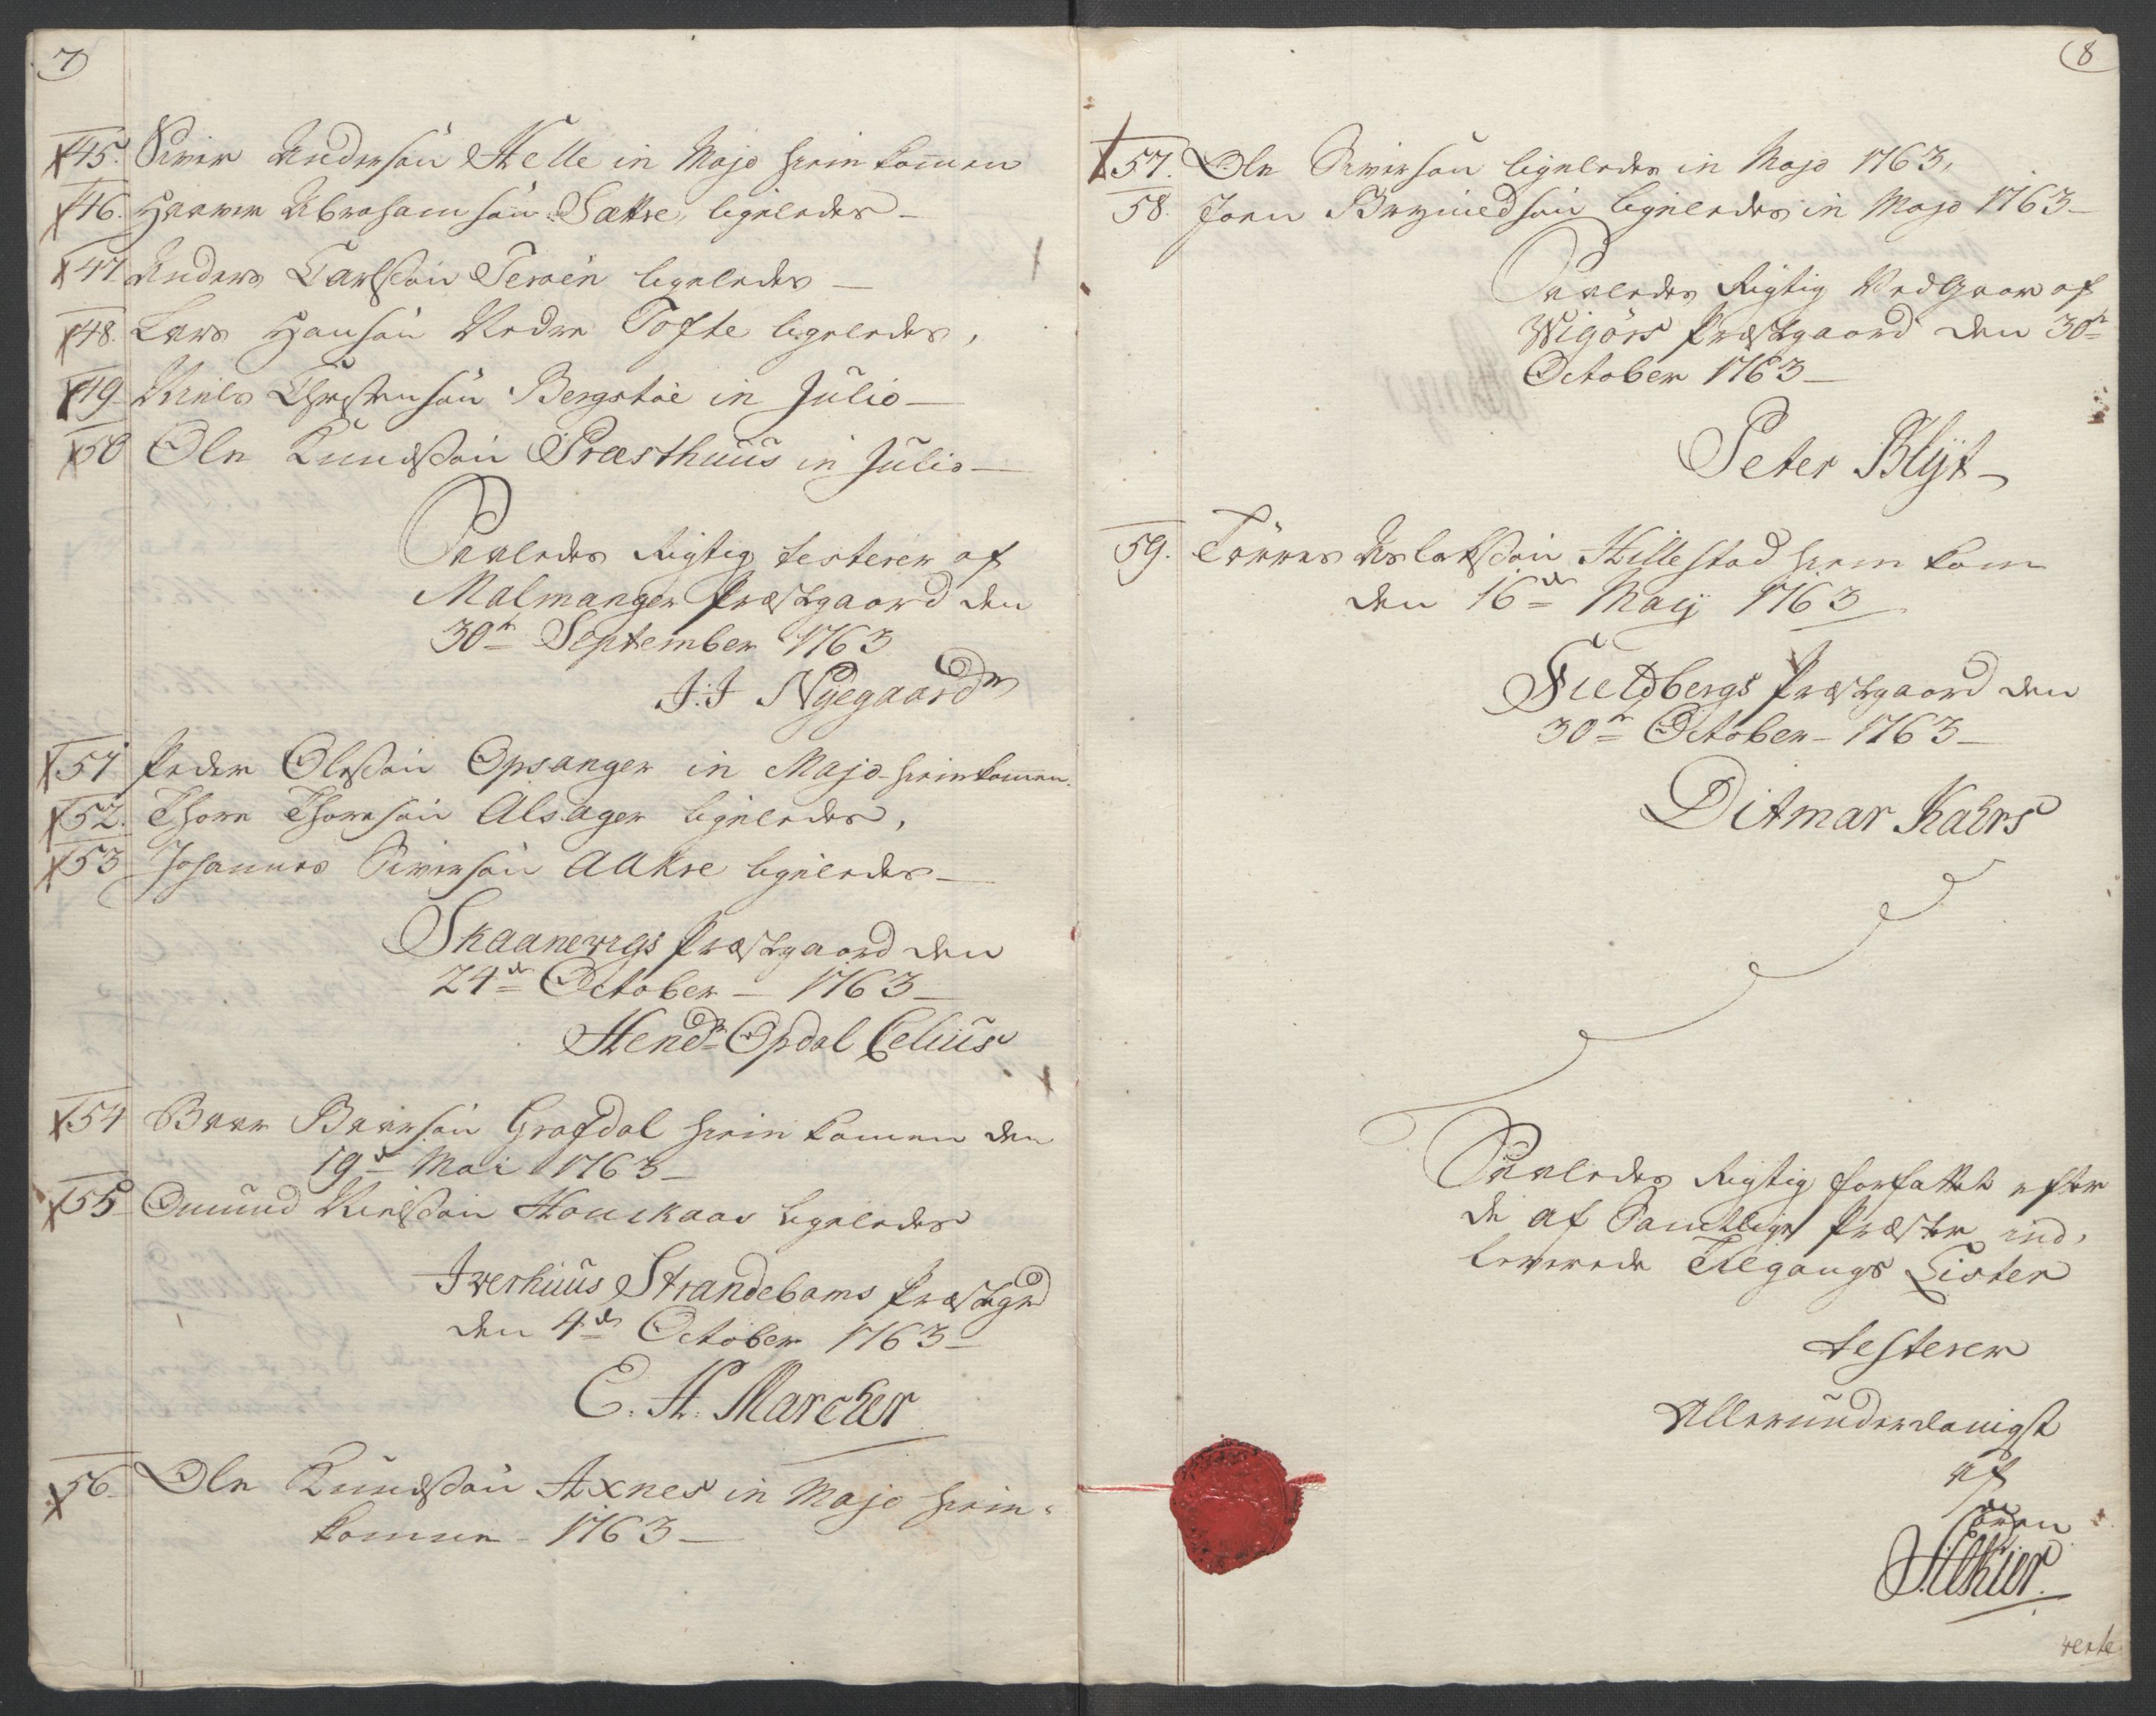 7
45. Siver Andersøn Helle in Majo hiemkommen
46. Haaver Abrahamsøn Sættre, ligeledes
47 Anders Carlssøn Terøen ligeledes
48. Lars Hansøn Nedre Tofte ligeledes,
49 Niels Christensøn Bergstøe in Julio
50 Ole Knudssøn Præsthuus in Julio
Saaledes Rigtig testerer af
Malmanger Præstgaard den
30te September 1763
J: J Nÿegaard
51 Peder Olessøn Opsanger in Majo hiemkommen.
52. Thore Thoresøn Alsager ligeledes,
53 Johannes Siversøn Aakre ligeledes
Skaanevigs Præstgaard den
24de October 1763
Hendr Opdal Celius
54 Baar Baarsøn Grafdal hiemkommen den
19de Mai 1763
55 Omund Nielssøn Houckaas ligeledes
Iverhuus Strandebarms Præstgrd
den 4de October 1763
E. H. Marcher
56 Ole Knudssøn Axnes in Majo hiem-
kommen 1763
8
57. Ole Siversøn ligeledes in Majo 1763,
58. Joen Brÿnieldsøn ligeledes in Majo 1763
Saaledes Rigtig Vedgaar af
Wigørs Præstgaard den 30te
October 1763
Peter Blÿt
59. Tørres Aslakssøn Hillestad hiemkom
den 16de Maij 1763
Fieldbergs Præstgaard den
30te October 1763
Ditmar Kahrs
Saaledes Rigtig forfattet efter
de af Samtlige Præster ind,
leverede Tilgangs Lister
testerer
Allerunderdanigst
af
Søren
verte